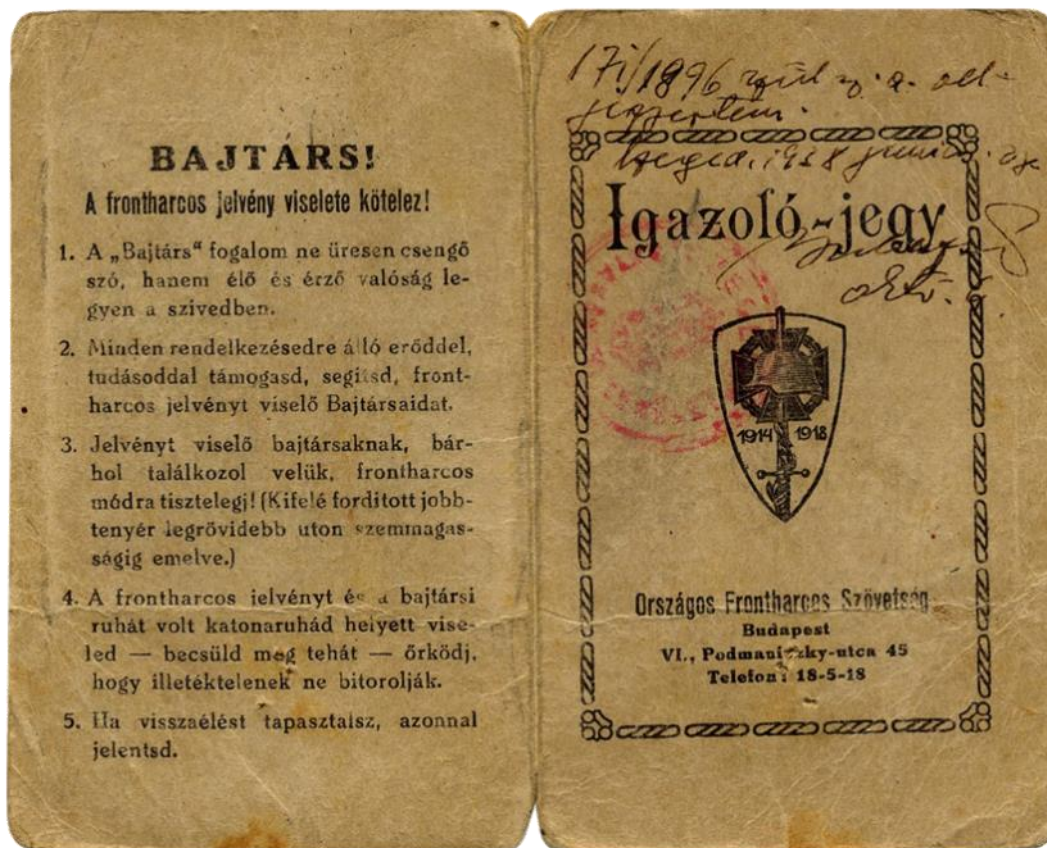 BAJTÁRS!
A frontharcos jelvény viselete kötelez!
1. A „Bajtárs“ fogalom ne üresen csengő
szó, hanem élő és érző valóság le-
gyen a szivedben.
2. Minden rendelkezésedre álló erőddel,
tudásoddal támogasd, segitsd, front-
harcos jelvényt viselő Bajtársaidat.
3. Jelvényt viselő bajtársaknak, bár-
hol találkozol velük, frontharcos
módra tisztelegj! (Kifelé forditott jobb-
tenyér legrövidebb uton szemmagas-
ságig emelve.)
4. A frontharcos jelvényt és a bajtársi
ruhát volt katonaruhád helyett vise-
led — becsüld meg tehát — őrködj,
hogy illetéktelenek ne bitorolják.
5. Ha visszaélést tapasztalsz, azonnal
jelentsd.
1896
Igazoló-jegy
1914 1918
Országos Frontharcos Szövetség
Budapest
VI., Podmaniczky-utca 45
Telefon: 18-5-18